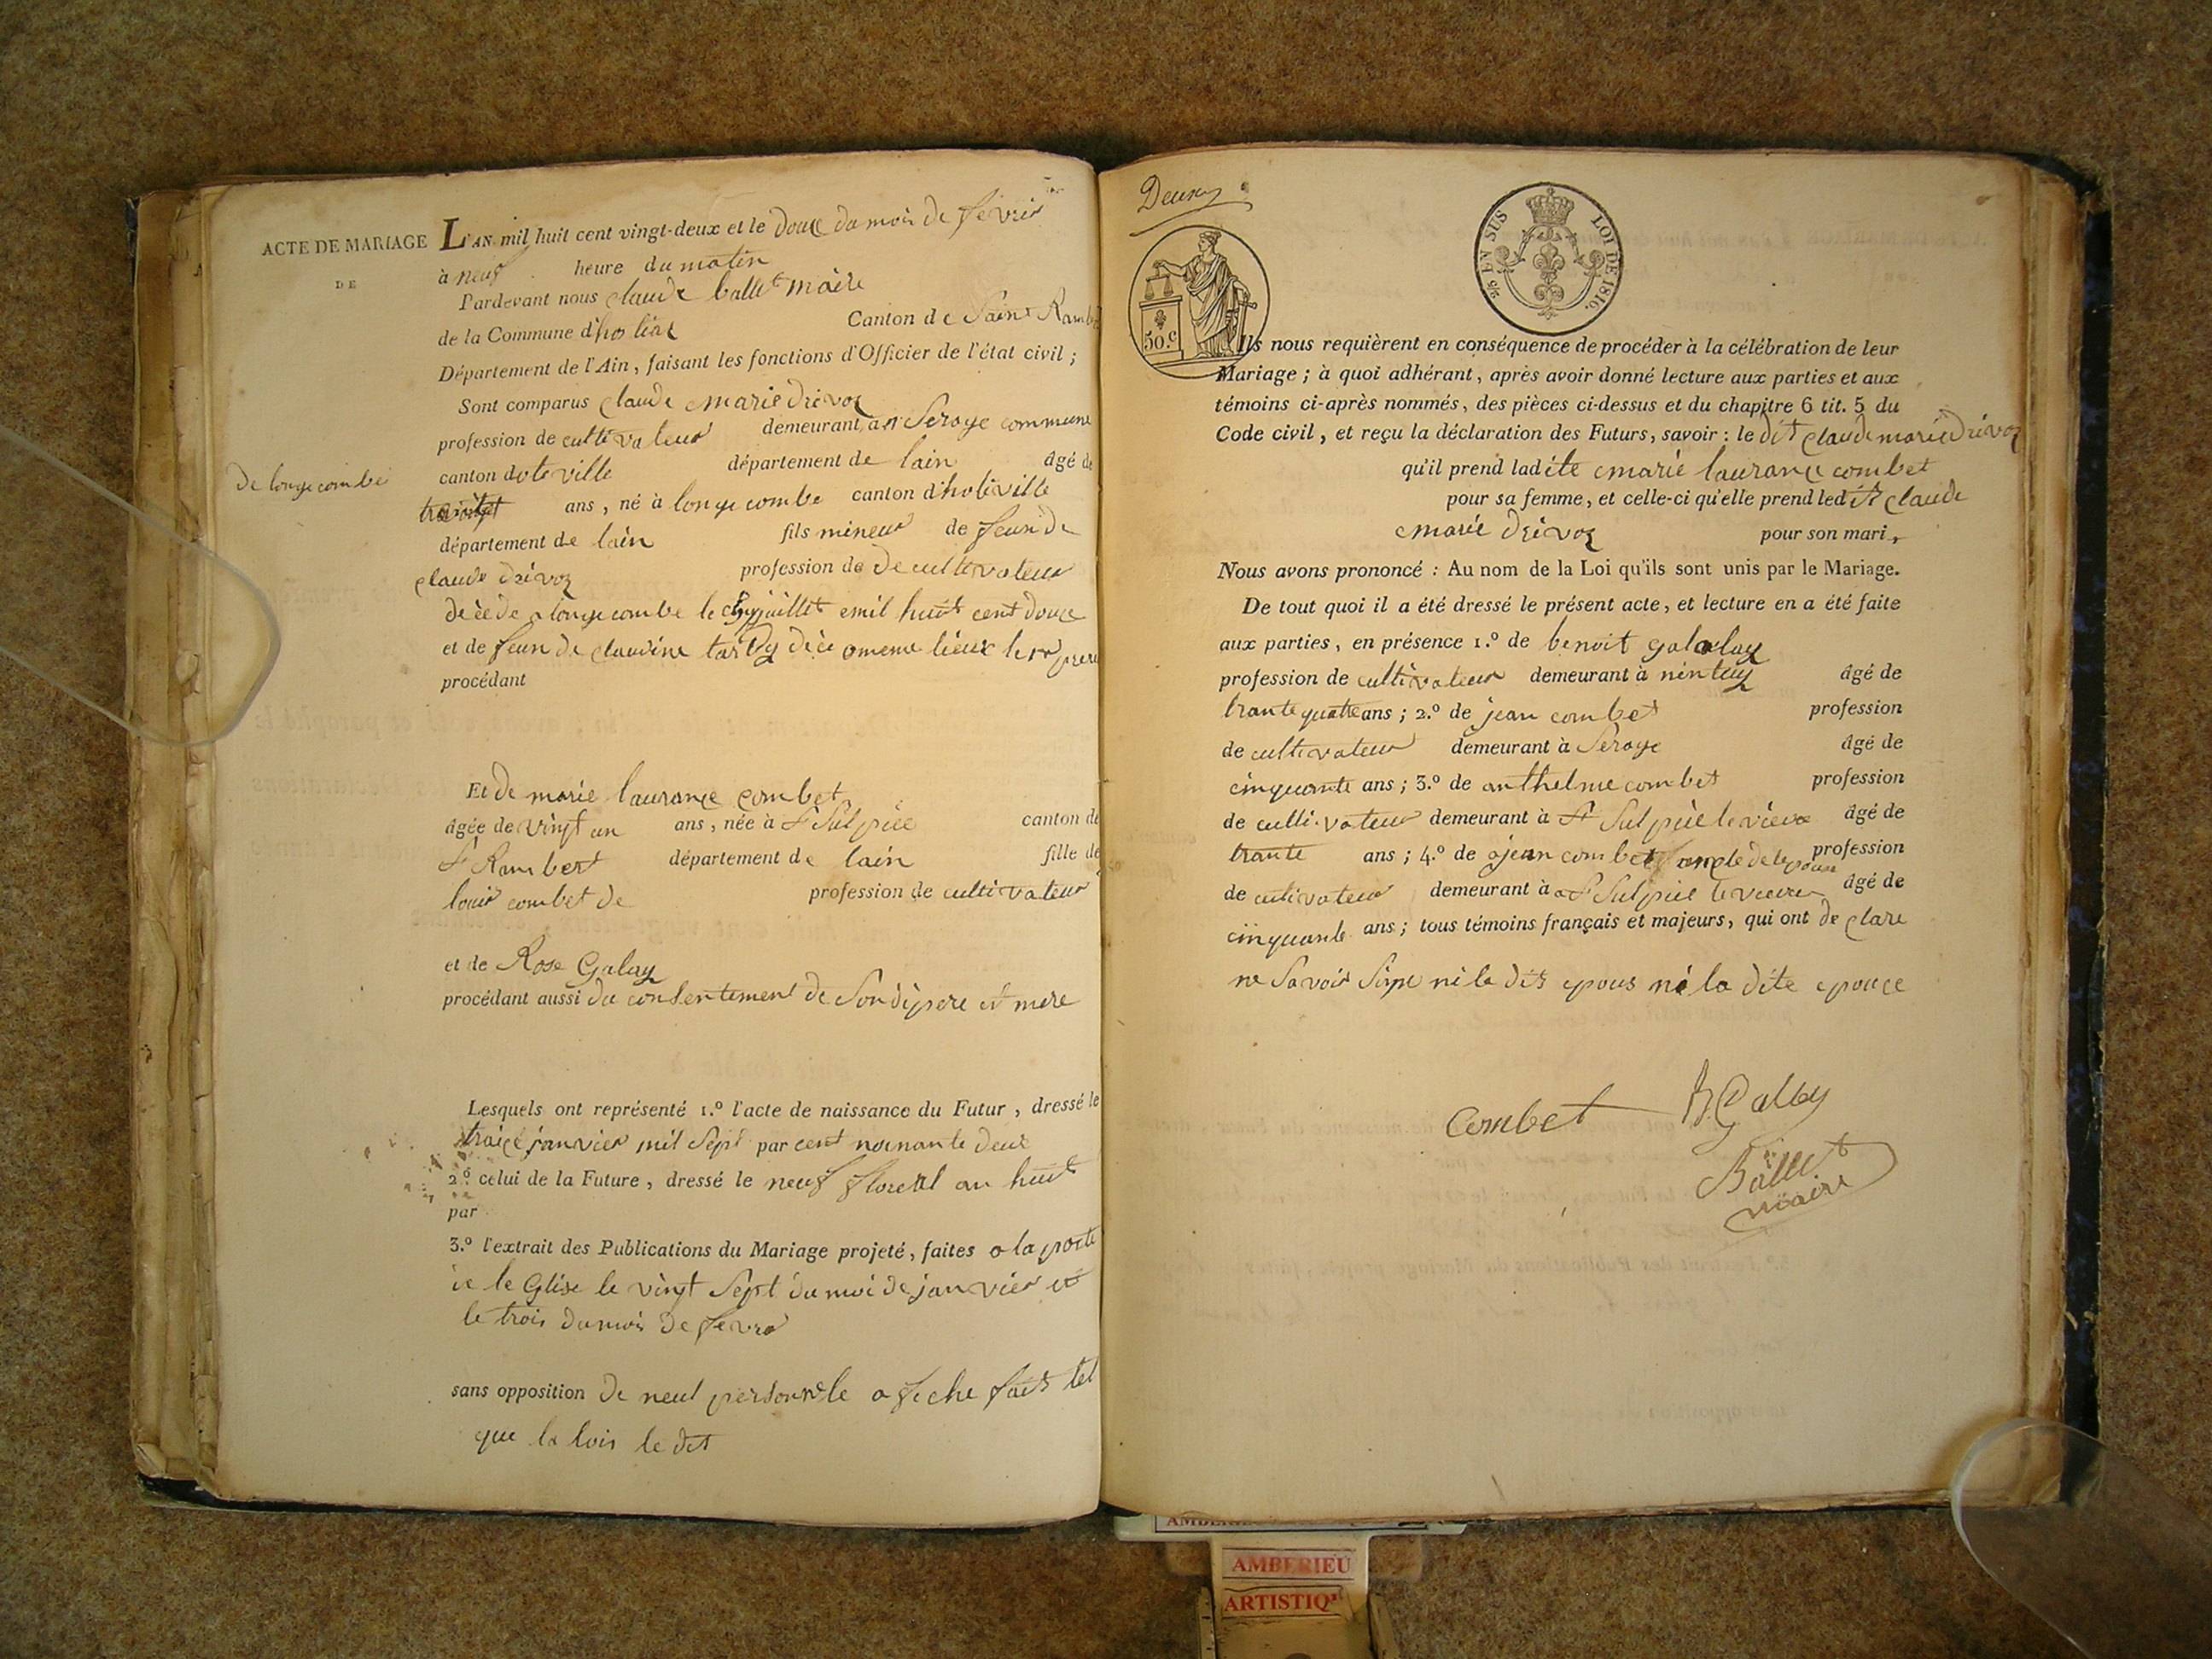 ACTE DE MARIAGE
DE
L'AN mil huit cent vingt-deux et le douce du mois de fevrier
à neuf heure du matin
Pardevant nous claude ballet maire
de la Commune d'hostiaz Canton de Saint Ramb
Département de l'Ain, faisant les fonctions d'Officier de l'état civil ;
Sont comparus claude marie drivoz
profession de cultivateur demeurant a Seroye commune
de longecombe
canton doteville département de lain âgé de
ans, né à longecombe canton d'hoteville
département de lain fils mineur de feu de
claude drivoz profession de de cultivateur
décéde a longecombe le juillet mil huit cent douce
et de feu de claudine tardy décé o meme lieux le
procédant
Et de marie laurance combet
âgée de vingt un ans, née à St Sulpice canton de
St Rambert département de lain fille de
louis combet de profession de cultivateur
et de Rose Galay
procédant aussi du consentement de Son di pere et mere
Lesquels ont représenté 1.º l'acte de naissance du Futur, dressé le
traice janvier mil Sept par cent nonante deux
2.º celui de la Future, dressé le neuf floreal an huit
par
3.º l'extrait des Publications du Mariage projeté, faites a la porte
de le Glise le vingt Sept du moi de janvier et
le trois du mois de fevre
sans opposition de neul personele afiche fait tel
que la lois le dit
Deux
50.c
EN SUS LOI DE 1816.
Ils nous requièrent en conséquence de procéder à la célébration de leur
Mariage ; à quoi adhérant, après avoir donné lecture aux parties et aux
témoins ci-après nommés, des pièces ci-dessus et du chapitre 6 tit. 5 du
Code civil, et reçu la déclaration des Futurs, savoir : le dit claude marie drivoz
qu'il prend ladite marie laurance combet
pour sa femme, et celle-ci qu'elle prend ledit claude
marie drivoz pour son mari,
Nous avons prononcé : Au nom de la Loi qu'ils sont unis par le Mariage.
De tout quoi il a été dressé le présent acte, et lecture en a été faite
aux parties, en présence 1.º de benoit galay
profession de cultivateur demeurant à âgé de
trante quatre ans ; 2.º de jean combet profession
de cultivateur demeurant à Seroye âgé de
cinquante ans ; 3.º de anthelme combet profession
de cultivateur demeurant à St Sulpice le vieux âgé de
trante ans ; 4.º de jean combet oncle de lepouse profession
de cultivateur demeurant à St Sulpice le vieux âgé de
cinquante ans ; tous témoins français et majeurs, qui ont de clare
ne Savoir Signe ni le dit epous ni la dite epouce
Combet B Gallay
Ballet
maire
AMBERIEU
ARTISTIQ